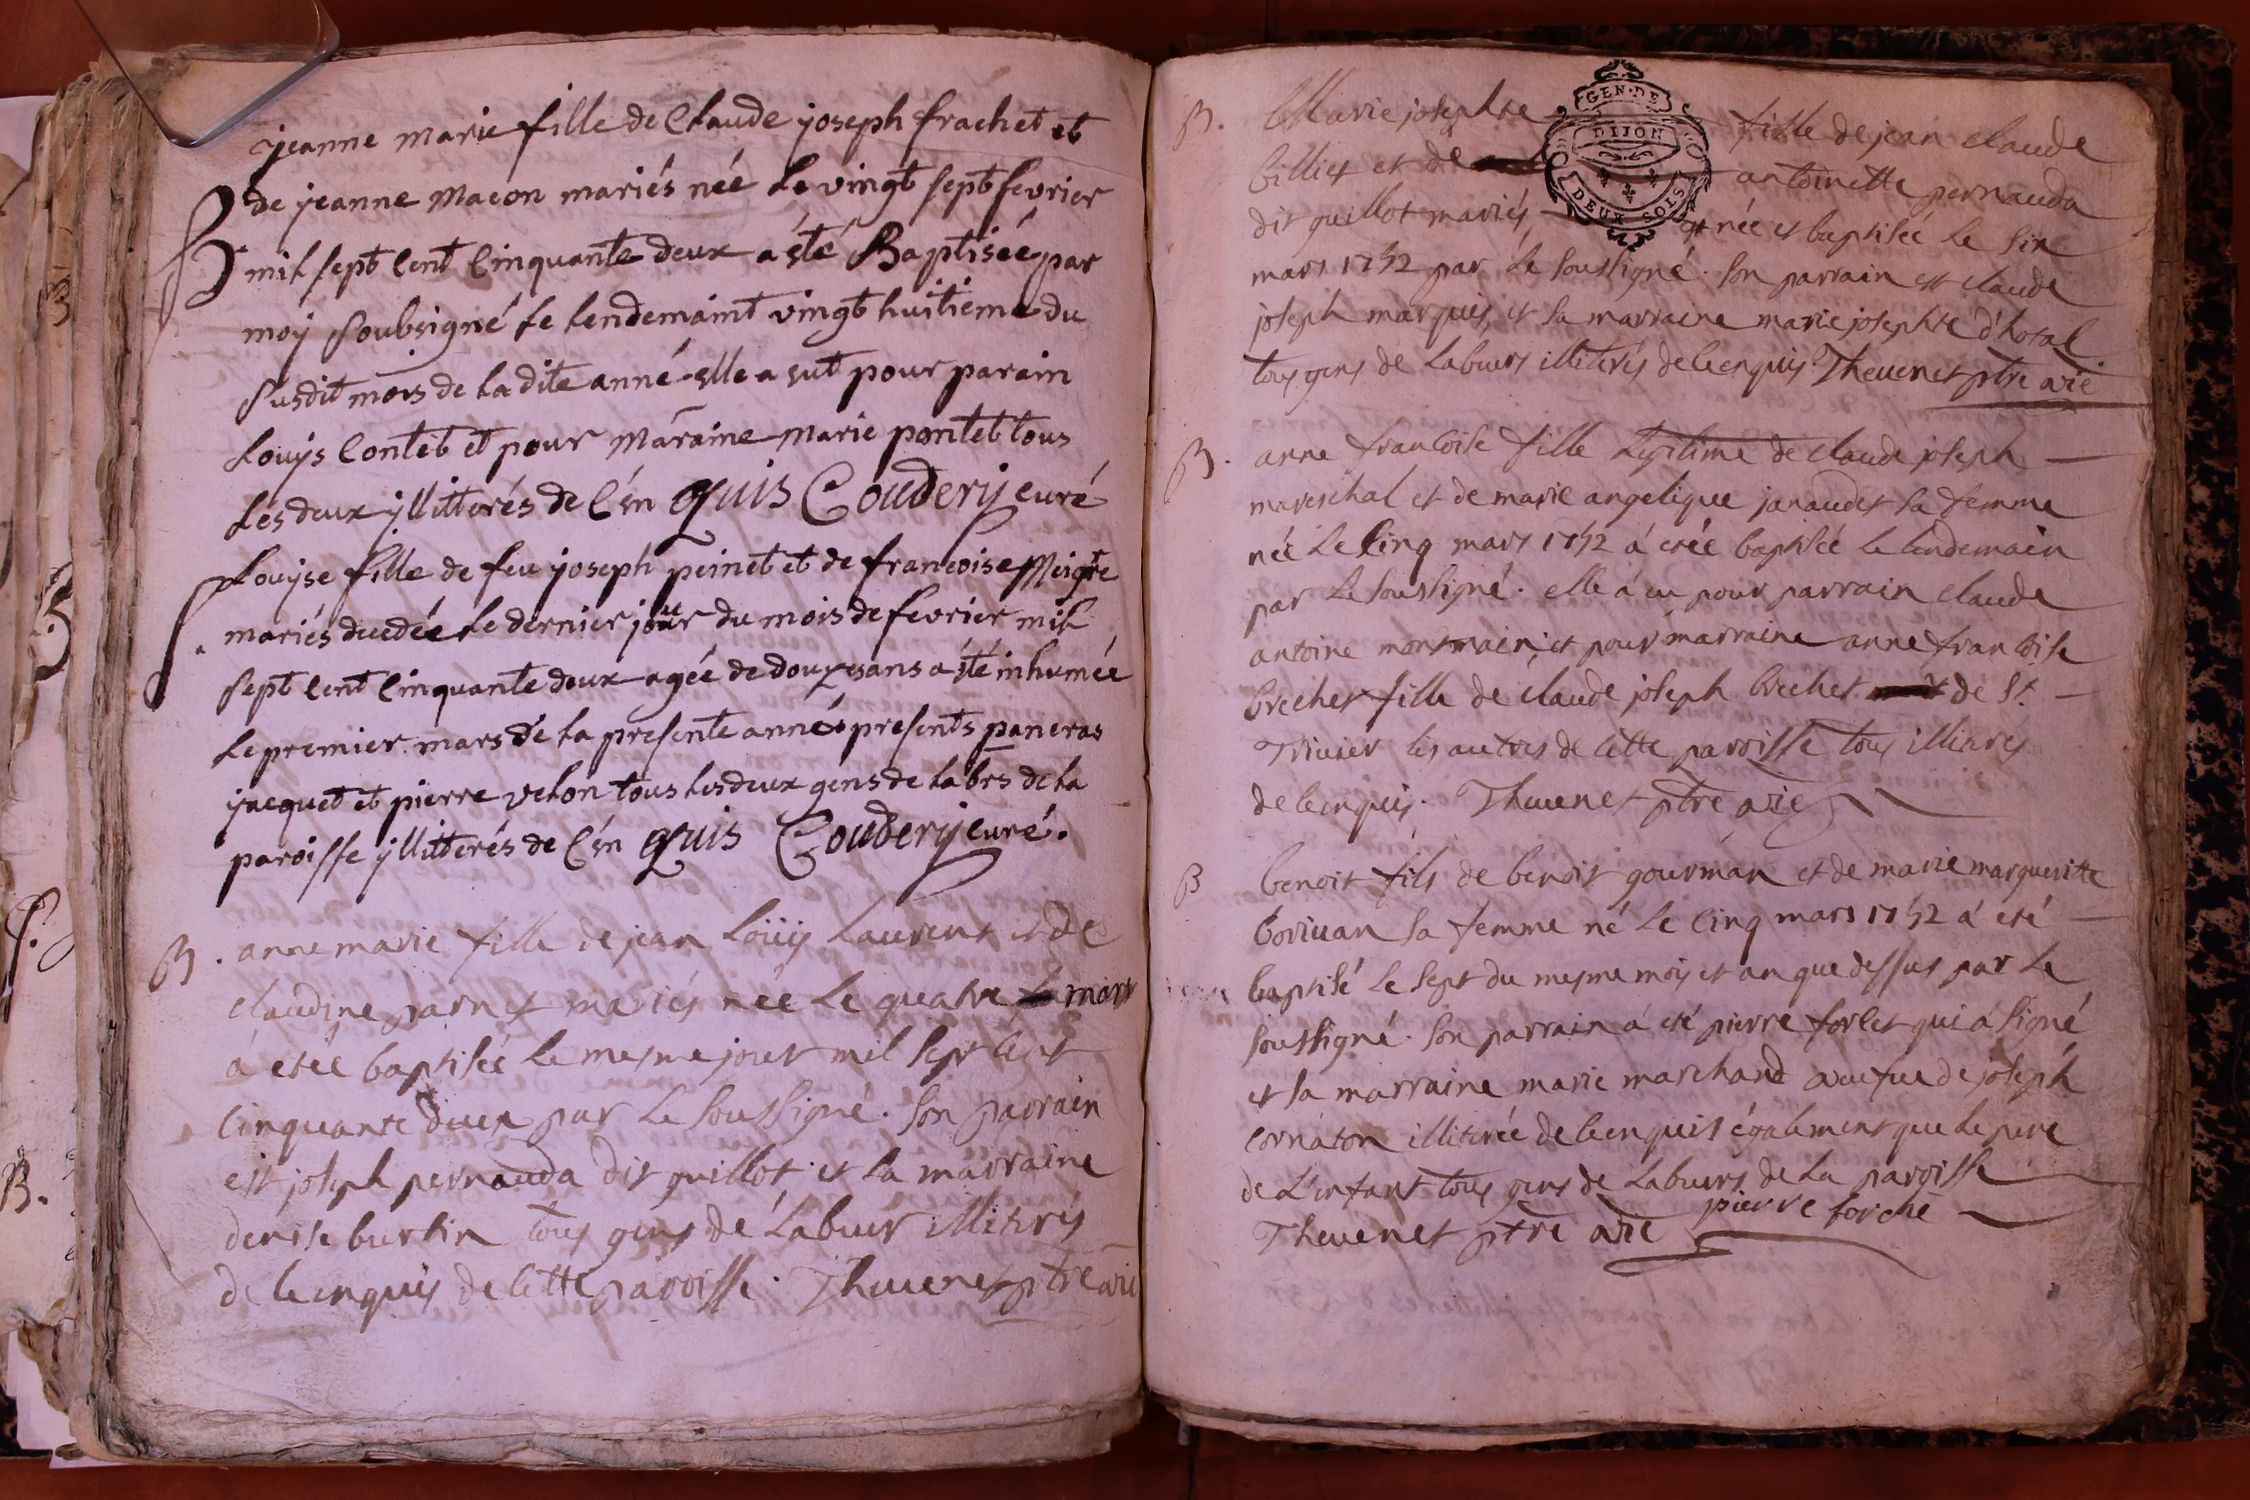 jeanne marie fille de Claude joseph frachet et
B de jeanne Macon mariés née le vingt sept fevrier
mil sept Cent Cinquante deux a été Baptisée par
moy Soubsigné le lendemaint vingt huitieme du
Susdit mois de ladite anné elle a eut pour parain
Louys Contet et pour Maraine marie pontet tous
Les deux yllitterés de C'en Quis Coudery curé
Louyse fille de feu joseph peinet et de francoise Meigre
S. mariés decedée le dernier jour du mois de fevrier mil
Sept Cent Cinquante deux agée de douze ans a été inhumée
Le premier mars de la presente année presents paneras
jacquet et pierre velon tous les deux gens de labrs de la
paroisse yllitterés de C'en Quis Coudery curé.
B. anne marie fille de jean Loüis Laurent et de
claudine parnet mariés née le quatre mars
á etéé baptisée le mesme jour mil sept cent
Cinquante deux par le soussigné. son parrain
est joseph pernauda dit guillot et la marraine
denise burtin tous gens de labeur illiterés
de ce enquis de cette paroisse. Thevenet ptre vic
GEN. DE
DIJON
DEUX SOLS
B. Marie josephte fille de jean claude
billiet et de antoinette pernauda
dit guillot mariés, et née et baptisée le six
mars 1752 par le soussigné. son parrain est claude
joseph marquis, et sa marraine marie josephte d'hotal
tous gens de labeurs illiterés de ce enquis. Thevenet ptre vic
B. anne francoise fille legitime de claude joseph
mareschal et de marie angelique janaudet sa femme
née le Cinq mars 1752 á etéé baptisée le lendemain
par le soussigné. elle á eu pour parrain claude
antoine montmain; et pour marraine anne francoise
brechet fille de claude joseph brechet de St.
Trivier les autres de cette paroisse tous illiterés
de ce enquis. Thevenet ptre vic
B benoit fils de benoit gourman et de marie margueritte
borivan sa femme né le Cinq mars 1752 á eté
baptisé le sept du mesme mois et an que dessus par le
soussigné. son parrain á eté pierre forlet qui á signé
et sa marraine marie marchand veufve de joseph
cornaton illiterée de ce enquise également que le pere
de L'enfant tous gens de labeurs de la paroisse
Thevenet ptre vic pierre forche